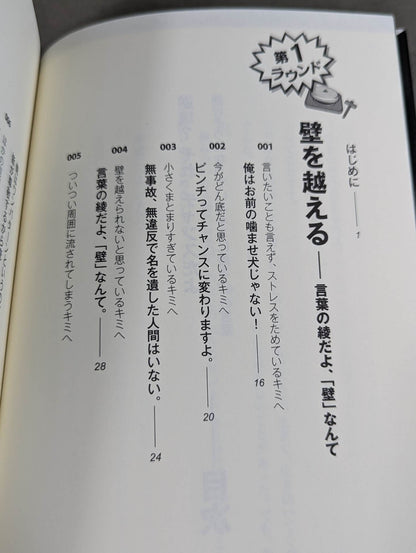 はじめに 1
第1ラウンド
壁を越える――言葉の綾だよ、「壁」なんて
001
言いたいことも言えず、ストレスをためているキミへ
俺はお前の噛ませ犬じゃない! 16
002
今がどん底だと思っているキミへ
ピンチってチャンスに変わりますよ。 20
003
小さくまとまりすぎているキミへ
無事故、無違反で名を遺した人間はいない。 24
004
壁を越えられないと思っているキミへ
言葉の綾だよ、「壁」なんて。 28
005
ついつい周囲に流されてしまうキミへ